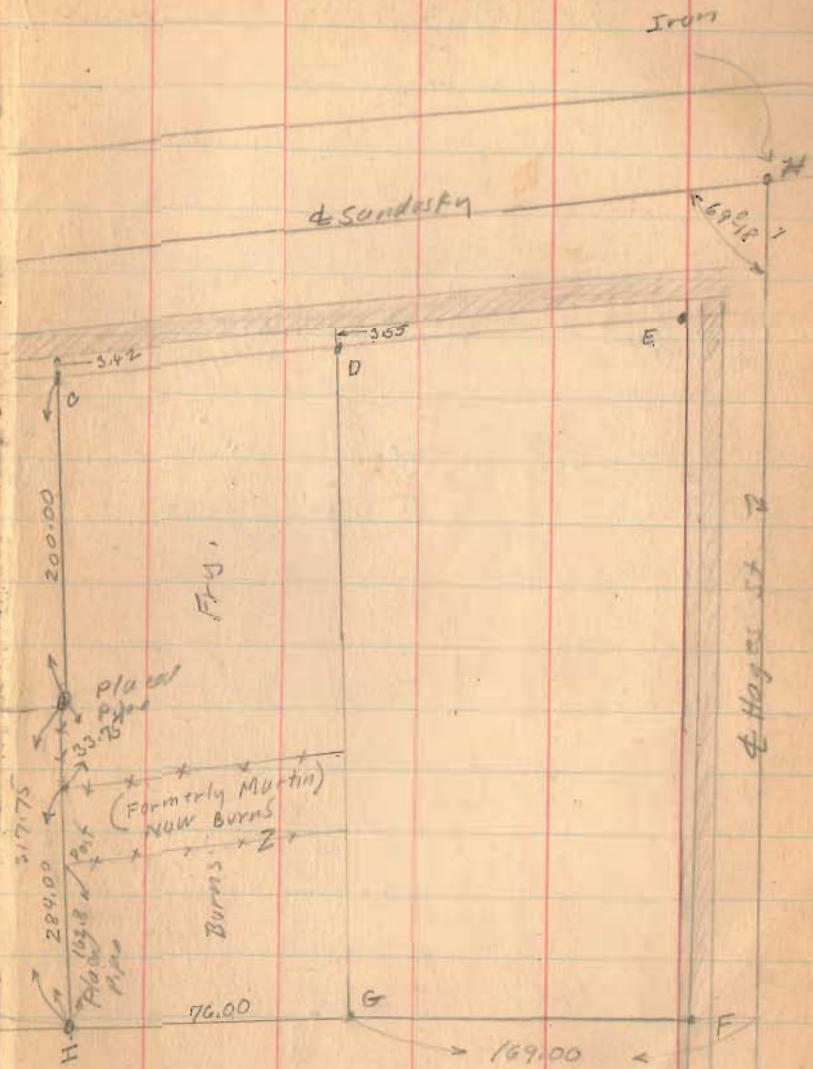 Iron
℄ Sandusky
69°18'
3.42
3.55
C
D
E
200.00
Fry.
℄ Hayes St.
Placed
Pipe
33.75
317.75
(Formerly Martin)
Now Burns
Z
Post
284.00
Burns
162.8
Placed
Pipe
H
76.00
G
F
169.00